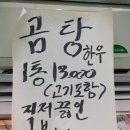 곰탕
한우
1통 13,000
(고기포함)
직접 끓인